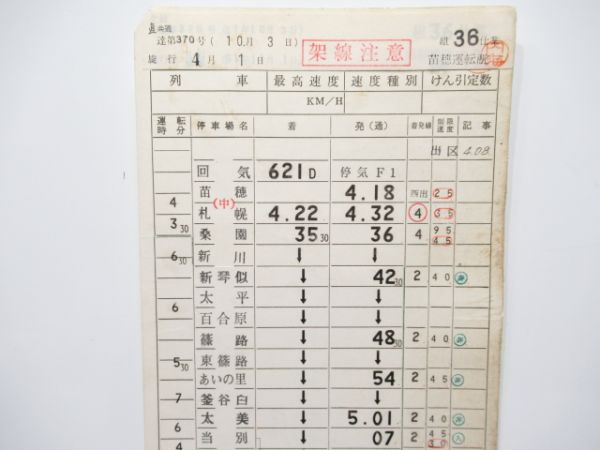 達第370号 (10月3日) 架線注意 組 36 仕業
施行 4月1日 苗穂運転所
列車 最高速度 速度種別 けん引定数
KM/H
運転時分 停車場名 着 発(通) 着発線 制限速度 記事
出区 4.03
回気 621D 停気F1
苗穂 4.18 西出 25
4 (中)
札幌 4.22 4.32 4 35
3 30
桑園 35 30 36 4 95 45
新川 ↓ ↓
6 30
新琴似 ↓ 42 30 2 40
太平 ↓ ↓
6
百合原 ↓ ↓
篠路 ↓ 48 30 2 40
東篠路 ↓ ↓
5 30
あいの里 ↓ 54 2 45
釜谷臼 ↓ ↓
7
太美 ↓ 5.01 2 40
6
当別 ↓ 07 2 45 30
4